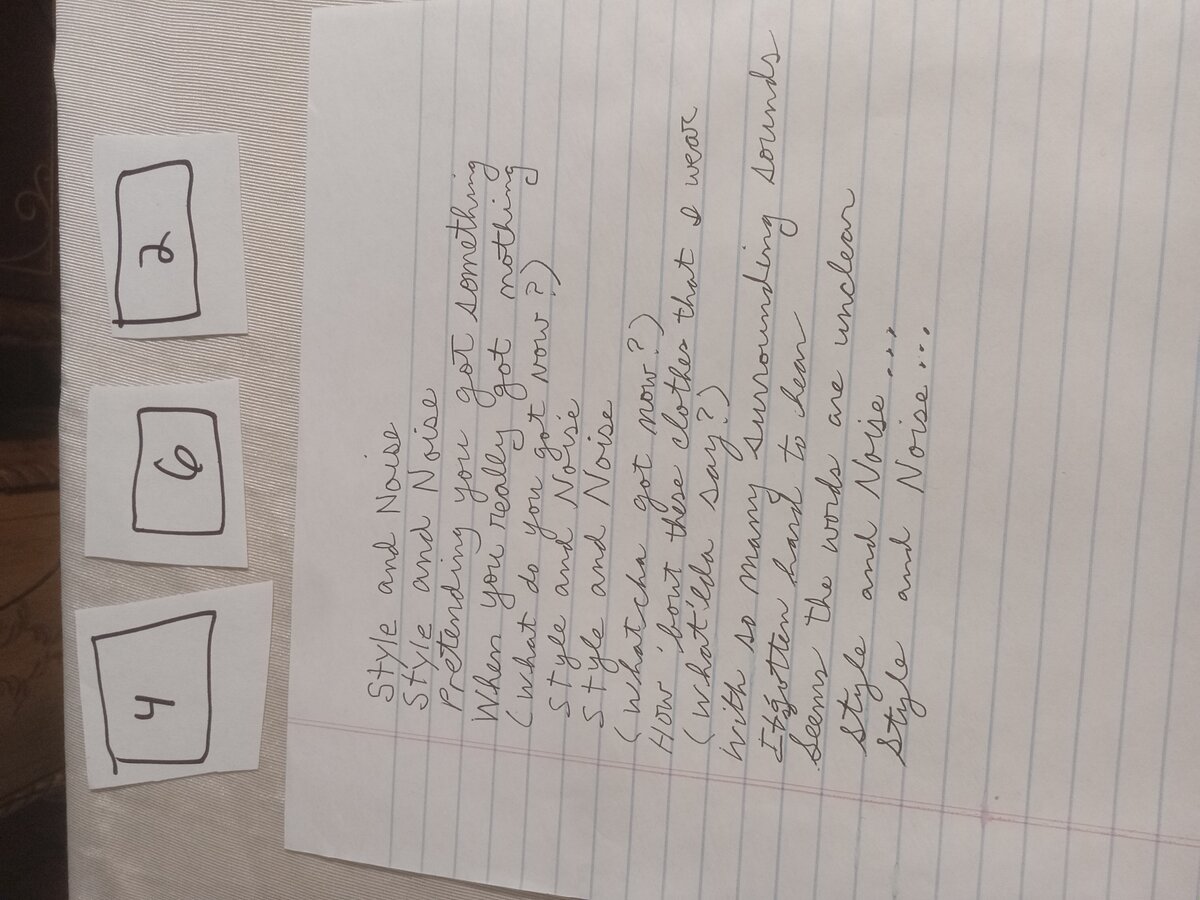 4 6 2
Style and Noise
Style and Noise
Pretending you got something
When you really got nothing
(what do you got now?)
Style and Noise
Style and Noise
(whatcha got now?)
How 'bout these clothes that I wear
(what'lda say?)
with so many surrounding sounds
Itgotten hard to hear
Seems the words are unclear
Style and Noise...
Style and Noise...